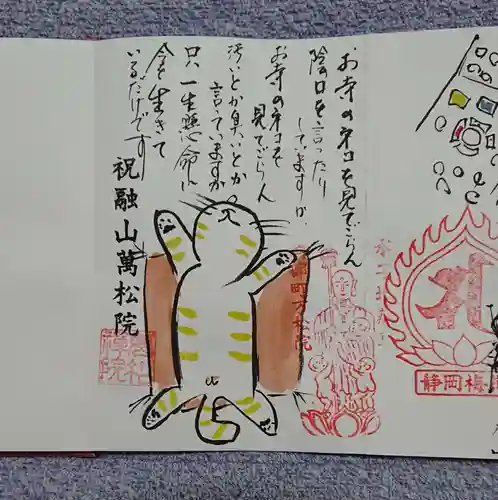 お寺のネコを見てごらん
陰口を言ったり
していますか、
お寺のネコを
見てごらん
汚いとか臭いとか
言っていますか
只、一生懸命に
今を生きて
いるだけです
祝融山萬松院
静岡梅